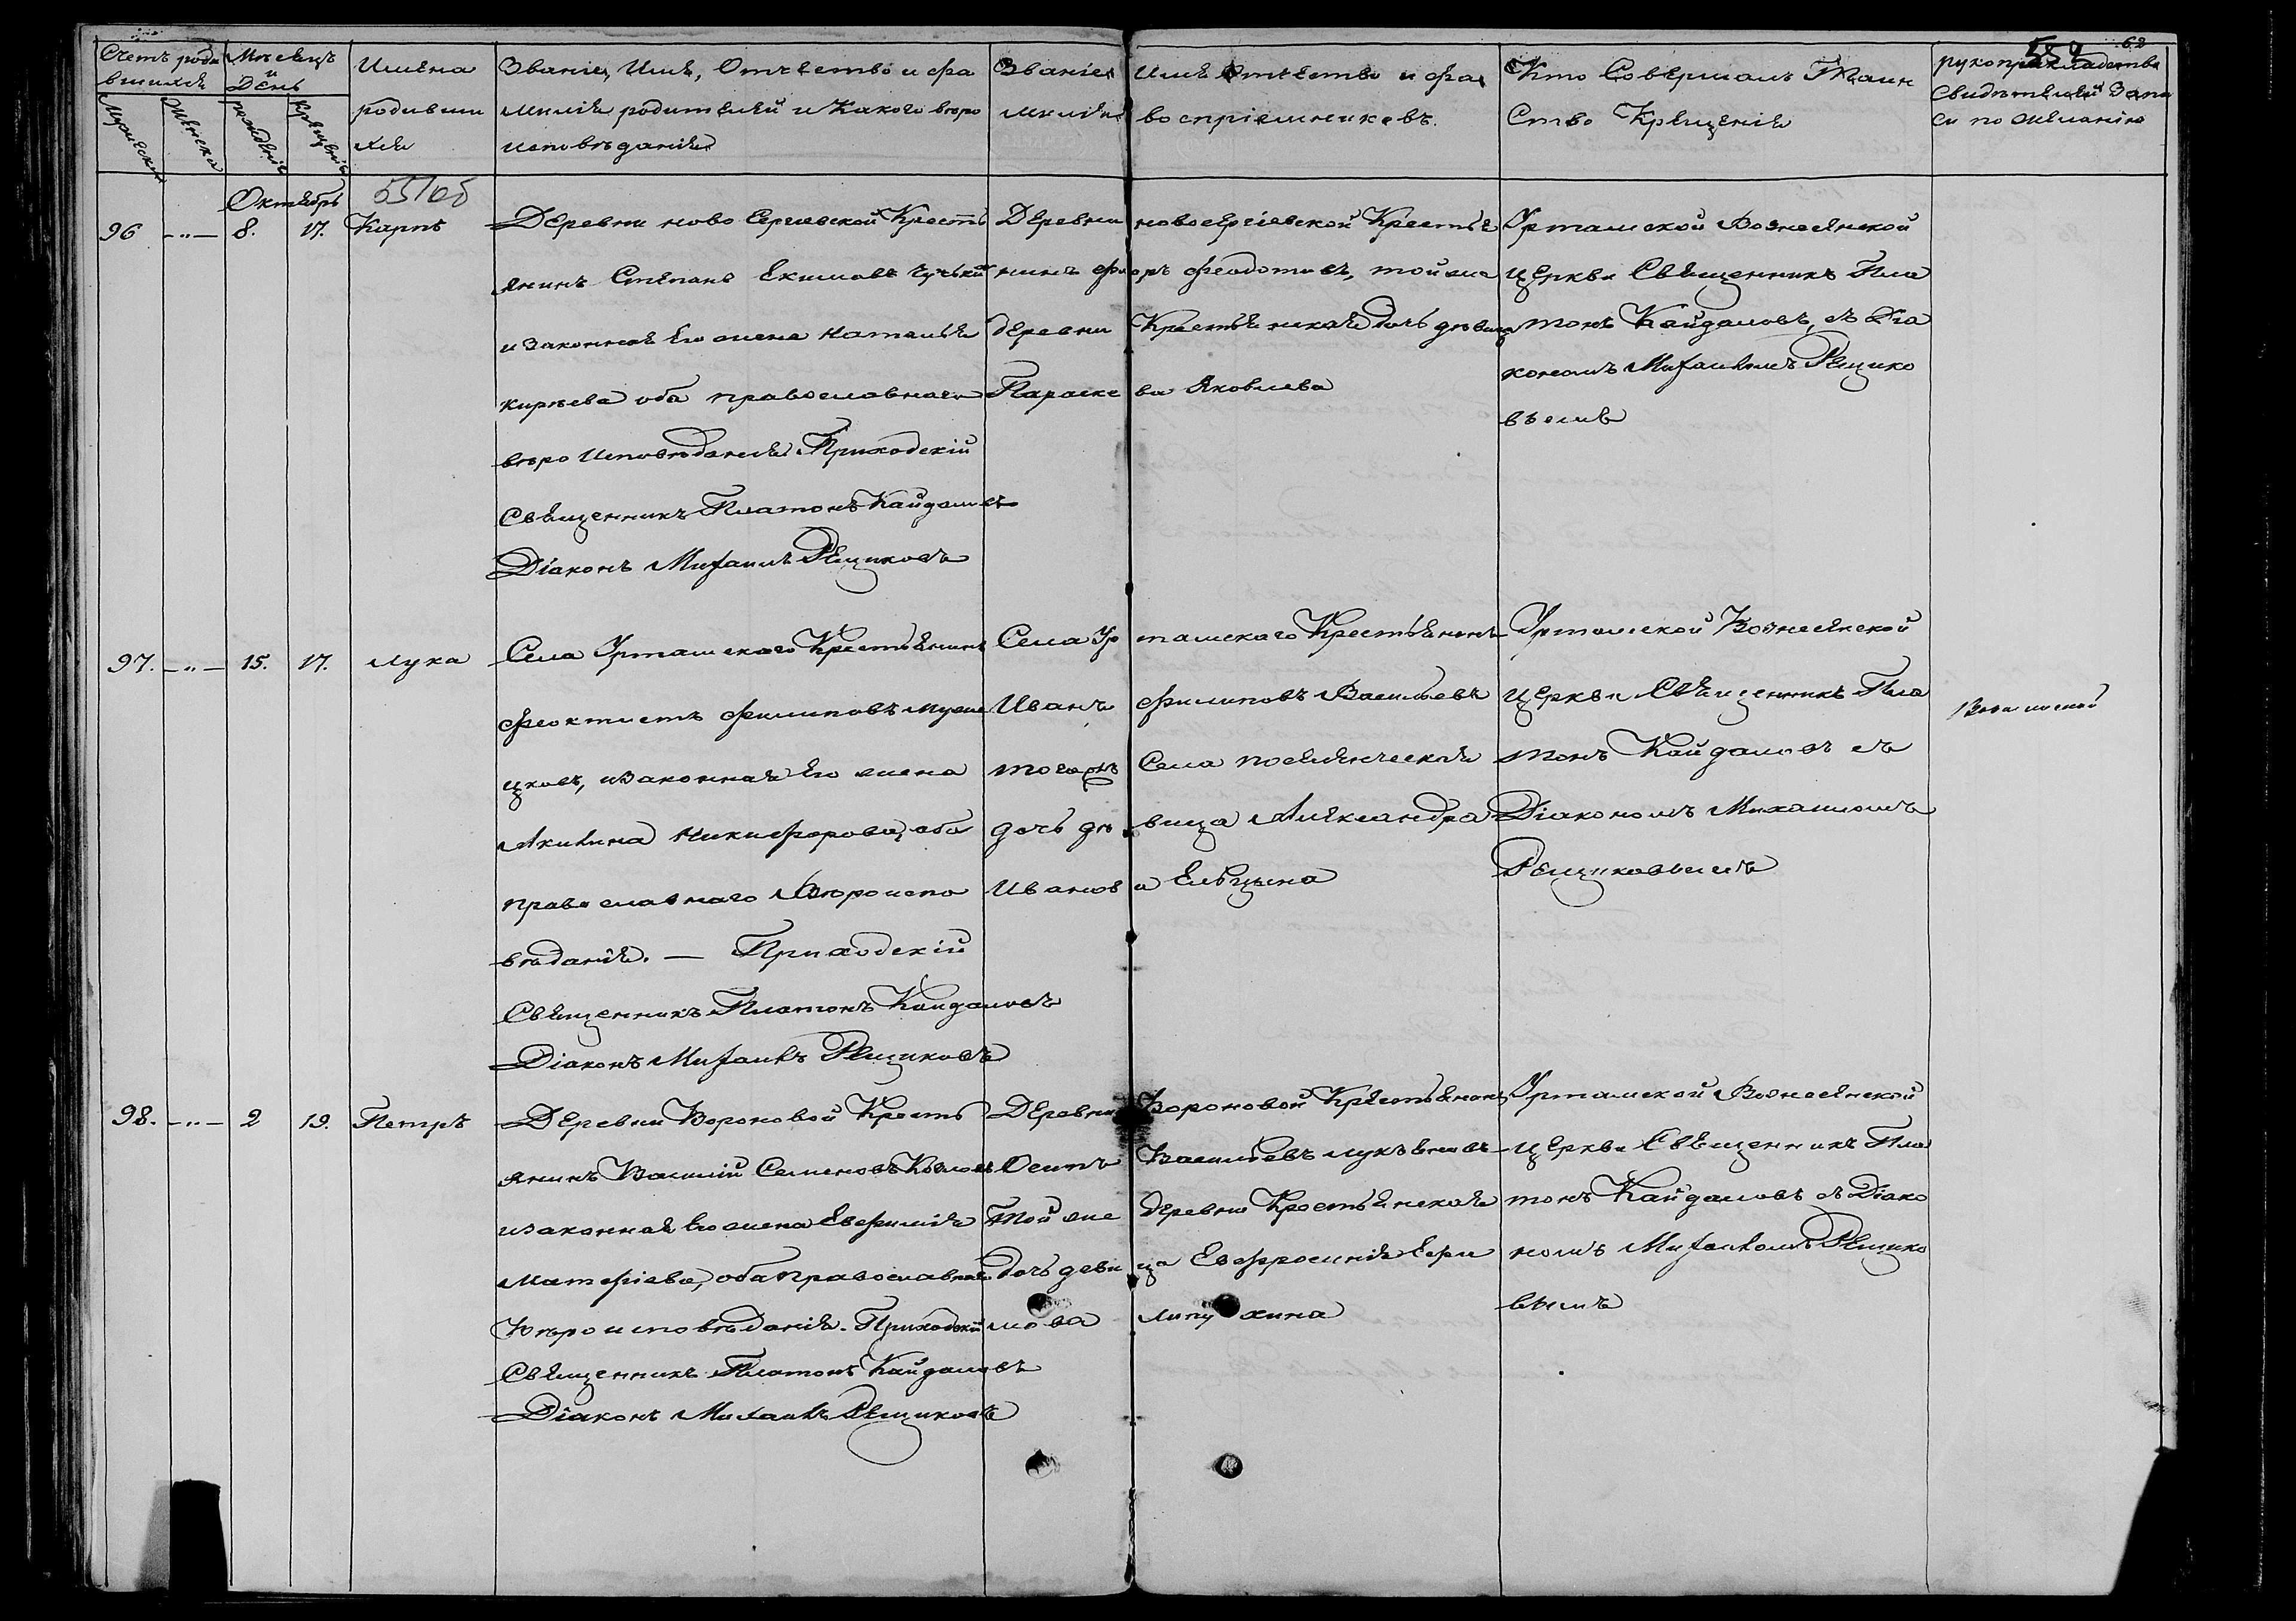 62
Счетъ роди
вшихся
Мужеска
Женска
Мѣсецъ
и
День
рожденія
крещенія
Имѣна
родивши
хся
Званіе, Имя, Отчество и фа
милія родителей и Какого вѣро
исповѣданія
Званіе, Имя Отчество и фа
милія воспріемниковъ.
Кто Совершалъ Таин
Ство Крещенія
рукоприкладство
Свидѣтелей Запи
си по желанію
Октябрь
96 -"- 8. 17. Карпъ
Деревни ново Сергіевской Кресть
янинъ Стѣпанъ Екимовъ
и законная Его жена Наталья
Кирѣева оба православнаго
вѣро Исповѣданія Приходскій
Священникъ Платонъ Кайдаловъ
Діаконъ Михаилъ Рещиковъ
Деревни новосергіевской Крестья
нинъ Феодотовъ, той же
деревни Крестьянская дочь дѣвица
Параске ва Яковлева
Урталиской Вознесенской
Церкви Священникъ Пла
тонъ Кайдаловъ, съ Діа
кономъ Михаиломъ Рещико
вымъ
97. -"- 15. 17. Лука
Села Урталискаго Крестьянинъ
Феоктистъ Филиповъ
и законная Его жена
Акилина Никифорова, оба
православнаго Вѣроиспо
вѣданія. — Приходскій
Священникъ Платонъ Кайдаловъ
Діаконъ Михаилъ Рещиковъ
Села Ур талискаго Крестьянинъ
Иванъ Филиповъ Васильевъ
тогожъ Села
дочь дѣ вица Александра
Иванов а Ельцына
Урталиской Вознесенской
Церкви Священникъ Пла
тонъ Кайдаловъ съ
Діакономъ Михаиломъ
Рещиковымъ
98. -"- 2 19. Петръ
Деревни Вороновой Кресть
янинъ Василій Семеновъ Козловъ
и законная Его жена Евфимія
Матфіева, оба Православнаго
Вѣроисповѣданія. Приходскій
Священникъ Платонъ Кайдаловъ
Діаконъ Михаилъ Рещиковъ
Деревни Вороновой Крестьянинъ
Осипъ Васильевъ Лукъяновъ
Той же деревни Крестьянская
дочь деви ца Евфросинія Ерм
мова Липухина
Урталиской Вознесенской
Церкви Священникъ Пла
тонъ Кайдаловъ съ Діако
номъ Михаиломъ Рещико
вымъ